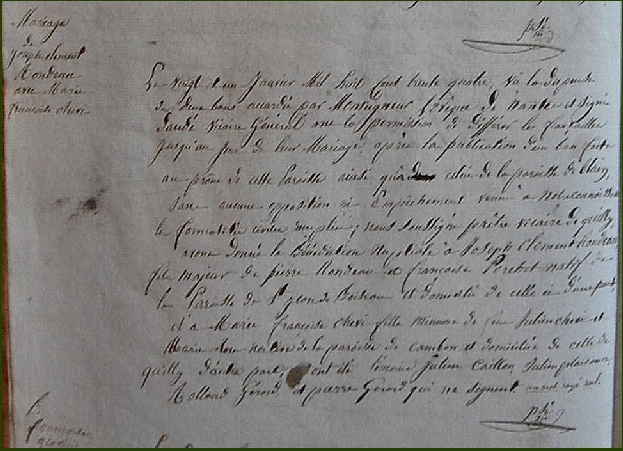 Mariage
de
joseph clement
Rondeau
avec Marie
francoise cheré
Le vingt et un Janvier Mil huit Cent trente quatre, Vu la dispense
de deux bans accordée par Monseigneur L'evêque de Nantes et signé
vicaire Général avec la permission de différer les fiançailles
jusqu'au jour de leur Mariage, après la publication d'un ban faite
au prône de cette Paroisse ainsi qu'à celui de la paroisse de
sans aucune opposition ni Empêchement venu à notre connoissance
les formalités civiles remplies, nous soussigné prêtre vicaire de quilly,
avons donné la Bénédiction Nuptiale à Joseph Clement Rondeau
fils majeur de pierre Rondeau et francoise natif de
la Paroisse de St jean de Boiseau et domicilié de celle ci d'une part,
et à Marie francoise cheré fille mineure de feu Julien cheré et
Marie native de la paroisse de cambon et domiciliée de celle de
quilly d'autre part, ont été témoins Julien Caillon, Julien
Rolland Gérard, et pierre Gérard qui ne signent. un mot rayé nul.